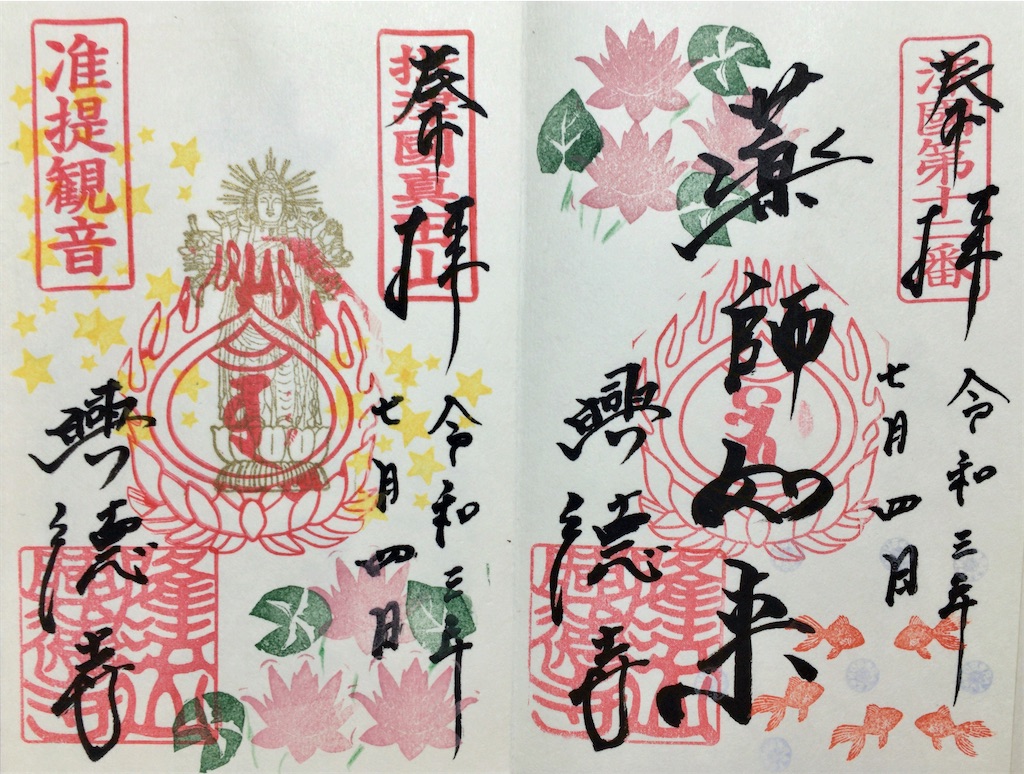 奉拝
國第十二番
令和三年
七月四日
薬師如来
興徳寺
奉拝
摂津國真田山
令和三年
七月四日
准提観音
興徳寺